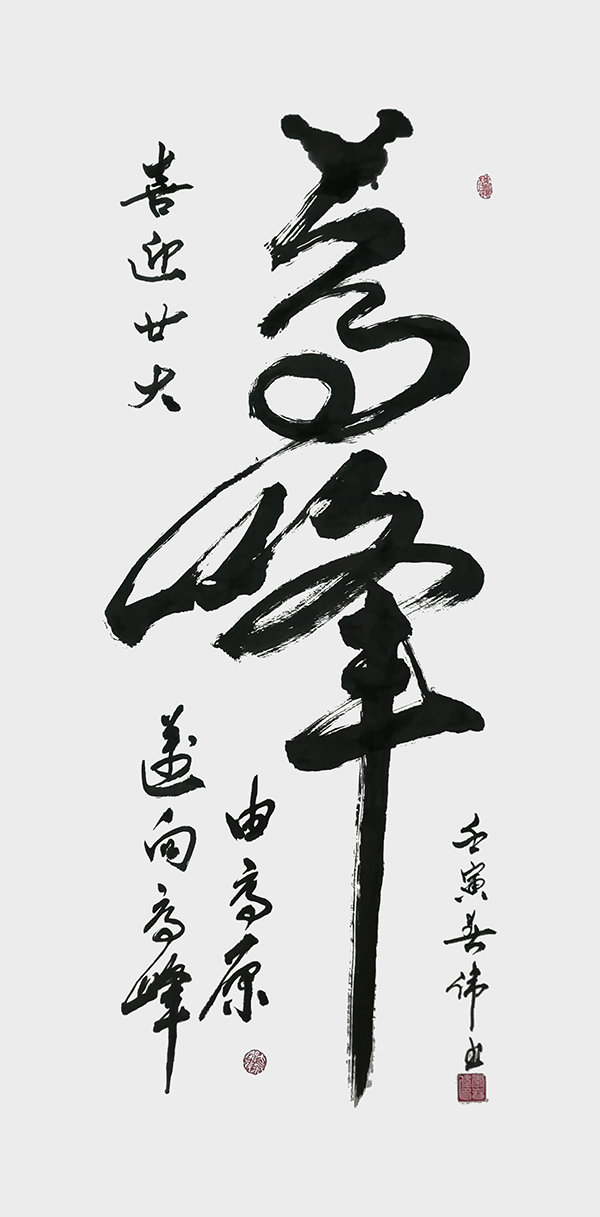 高峰
喜迎廿大
由高原
邁向高峰
壬寅春伟